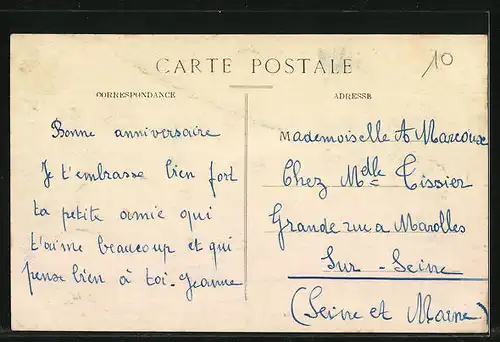 CARTE POSTALE
10
CORRESPONDANCE
Bonne anniversaire
Je t'embrasse bien fort
ta petite amie qui
t'aime beaucoup et qui
pense bien à toi - Jeanne
ADRESSE
Mademoiselle A Marcoux
Chez Mdlle Tissier
Grande rue a Marolles
Sur - Seine
(Seine et Marne)